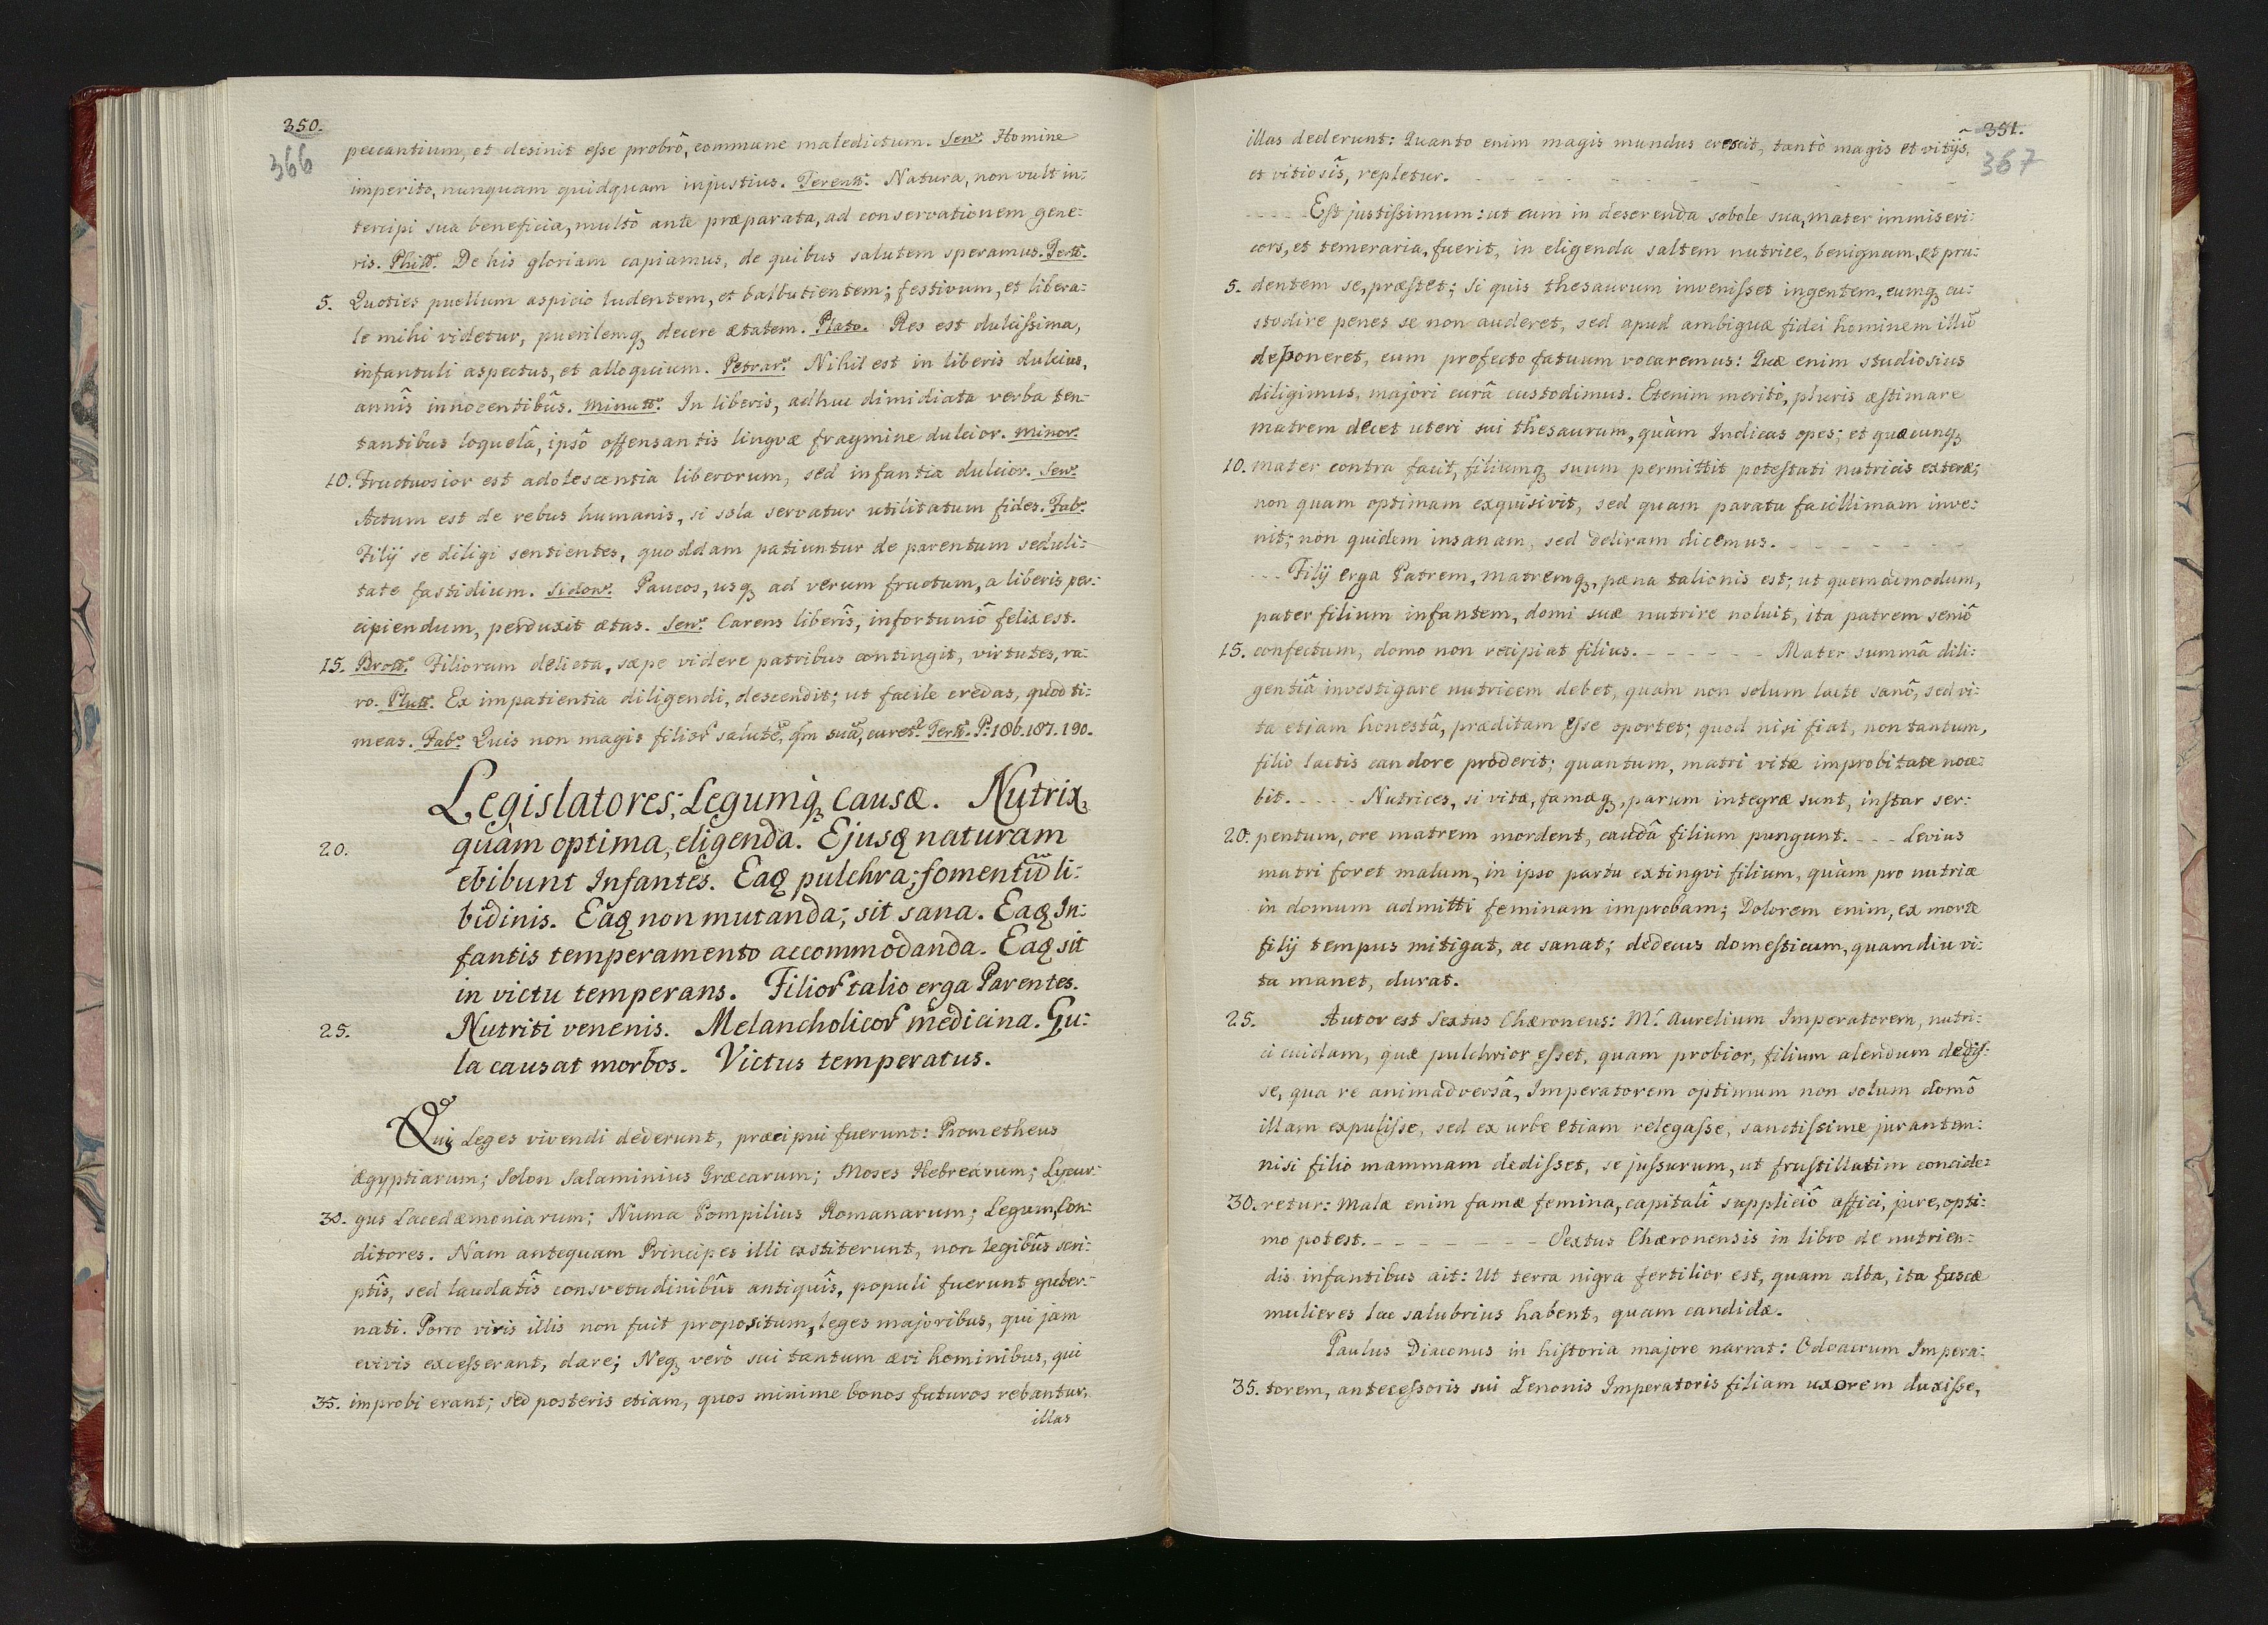 350.
366
peccantium, et desinit eſse probrô, commune maledictum. Senec. Homine
imperito, nunquam quidquam injustius. Terentt. Natura, non vult in:
tercipi sua beneficia, multò ante præparata, ad conservationem gene:
ris. Philtt. De his gloriam capiamus, de quibus salutem speramus. Tertt.
5. Quoties puellum aspicio ludentem, et balbutientem; festivum, et libera:
le mihi videtur, puerilemq3 decere ætatem. Plato. Res est dulcißima,
infantuli aspectus, et alloquium. Petrar. Nihil est in liberis dulcius,
annîs innocentibûs. Minutt. In liberis, adhuc dimidiata verba ten:
tantibus loquelâ, ipsô offensantis lingvæ fragmine dulcior. Minor.
10. Fructuosior est adolescentia liberorum, sed infantia dulcior. Sen.
Actum est de rebus humanis, si sola servatur utilitatum fides. Fab.
Filij se diligi sentientes, quoddam patiuntur de parentum seduli:
tate fastidium. Sidon. Paucos, usq3 ad verum fructum, a liberis per:
cipiendum, perduxit ætas. Sen. Carens liberîs, infortuniô felix est.
15. Brott. Filiorum delicta, sæpe videre patribus contingit, virtutes, ra:
ro. Plutt. Ex impatientia diligendi, descendit; ut facile credas, quod ti:
meas. Fab. Quis non magis filior salutē, qm suā, curet? Tertt. P: 186. 187. 190.
Legislatores; Legumq3 Causæ. Nutrix,
20. quàm optima, eligenda. Ejusq3 naturam
ebibunt Infantes. Eaq3 pulchra; fomentū li:
bidinis. Eaq3 non mutanda; sit sana. Eaq3 In:
fantis temperamento accommodanda. Eaq3 sit
in victu temperans. Filior talio erga Parentes.
25. Nutriti venenis. Melancholicor medicina. Gu:
la causat morbos. Victus temperatus.
Qui Leges vivendi dederunt, præcipui fuerunt: Prometheus
Ægyptiarum; Solon Salaminius Græcarum; Moses Hebrearum; Lycur:
30. gus Lacedæmoniarum; Numa Pompilius Romanarum; Legum Con:
ditores. Nam antequam Principes illi exstiterunt, non legibûs scri:
ptîs, sed laudatîs consvetudinibûs antiquîs, populi fuerunt guber:
nati. Porro viris illis non fuit propositum, leges majoribus, qui jam
evivis exceſserant, dare; Neq3 verò sui tantum ævi hominibus, qui
35. improbi erant; sed posteris etiam, quos minime bonos futuros rebantur,
illas
351.
367
illas dederunt: Quanto enim magis mundus crescit, tantò magis et vitijs,
et vitiosîs, repletur. - - - - - - - -
- - - - Eſt justiſsimum: ut cum in deserenda sobole sua, mater immiseri:
cors, et temeraria, fuerit, in eligenda saltem nutrice, benignam, et pru:
5. dentem se, præſtet; Si quis thesaurum inveniſset ingentem, eumq3 cu:
stodire penes se non auderet, sed apud ambiguæ fidei hominem illū
deponeret, eum profecto fatuum vocaremus: Quæ enim studiosius
diligimus, majori curâ custodimus. Etenim meritò, pluris æſtimare
matrem decet uteri sui thesaurum, quàm Indicas opes; et quæcunq3
10. mater contra facit, filiumq3 suum permittit poteſtati nutricis exteræ;
non quam optimam exquisivit, sed quam paratu facillimam inve:
nit; non quidem insanam, sed deliram dicemus. - - - - - -
- - - Filij erga Patrem, matremq3, pæna talionis est; ut quemadmodum,
pater filium infantem, domi suæ nutrire noluit, ita patrem seniô
15. confectum, domo non recipiat filius. - - - - - - Mater summâ dili:
gentiâ investigare nutricem debet, quam non solum lacte sanô, sed vi:
ta etiam honestâ, præditam eſse oportet; quod nisi fiat, non tantum,
filio lactis candore proderit; quantum, matri vitæ improbitate noce:
bit. - - - - Nutrices, si vitæ, famæq3, parum integræ sunt, inſtar ser:
20. pentum, ore matrem mordent, caudâ filium pungunt. - - - Levius
matri foret malum, in ipso partu extingvi filium, quàm pro nutrice
in domum admitti feminam improbam; Dolorem enim, ex morte
filij tempus mitigat, ac sanat; dedecus domeſticum, quamdiu vi:
ta manet, durat.
25. Autor est Sextus Chæroneus: M. Aurelium Imperatorem, nutri:
ci cuidam, quæ pulchrior eſset, quam probior, filium alendum dediſ:
se, qua re animadversâ, Imperatorem optimum non solum domô
illam expuliſse, sed ex urbe etiam relegaſse, sanctiſsime jurantem:
nisi filio mammam dediſset, se juſsurum, ut fruſtillatim concide:
30. retur: Malæ enim famæ femina, capitalî suppliciô affici, jure, opti:
mo potest. - - - - - - - - Sextus Chæronensis in libro de nutrien:
dis infantibus ait: Ut terra nigra fertilior est, quam alba, ita fuscæ
mulieres lac salubrius habent, quam candidæ.
Paulus Diaconus in hiſtoria majore narrat: Odoacrum Impera:
35. torem, anteceſsoris sui Zenonis Imperatoris filiam uxorem duxiſse,